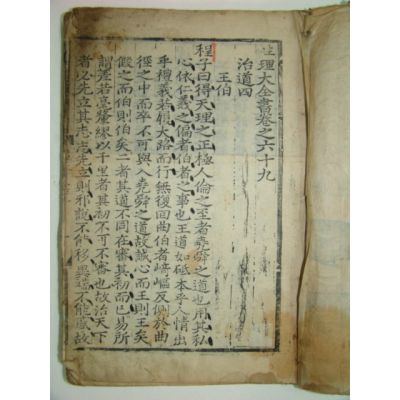 性理大全書卷之六十九
治道四
王伯
程子曰得天理之正極人倫之至者堯舜之道也用其私
心依仁義之偏者伯者之事也王道如砥本乎人情出
乎禮義若履大路而行無復回曲伯者崎嶇反側於曲
徑之中而卒不可與入堯舜之道故誠心而王則王矣
假之而伯則伯矣二者其道不同在審其初而已易所
謂差若毫釐繆以千里者其初不可不審也故治天下
者必先立其志志先立則邪說不能移異端不能惑故